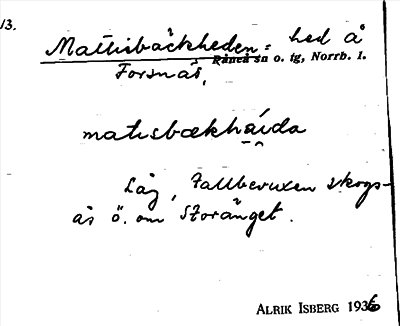 13.
Mattisbäckheden = hed å
Råneå sn o. tg, Norrb. l.
Forsnäs.
matısbækháı̯da
Låg, tallbevuxen skogs-
ås ö. om Storänget.
ALRIK ISBERG 1936